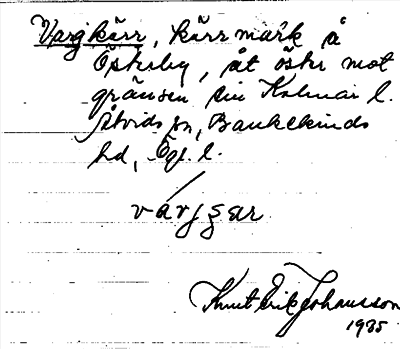 Vargkärr, kärrmark å
Öskeby, åt öster mot
gränsen till Kalmar l.
Åtvids sn, Bankekinds
hd, Ögl. l.
Knut Erik Johansson
1935